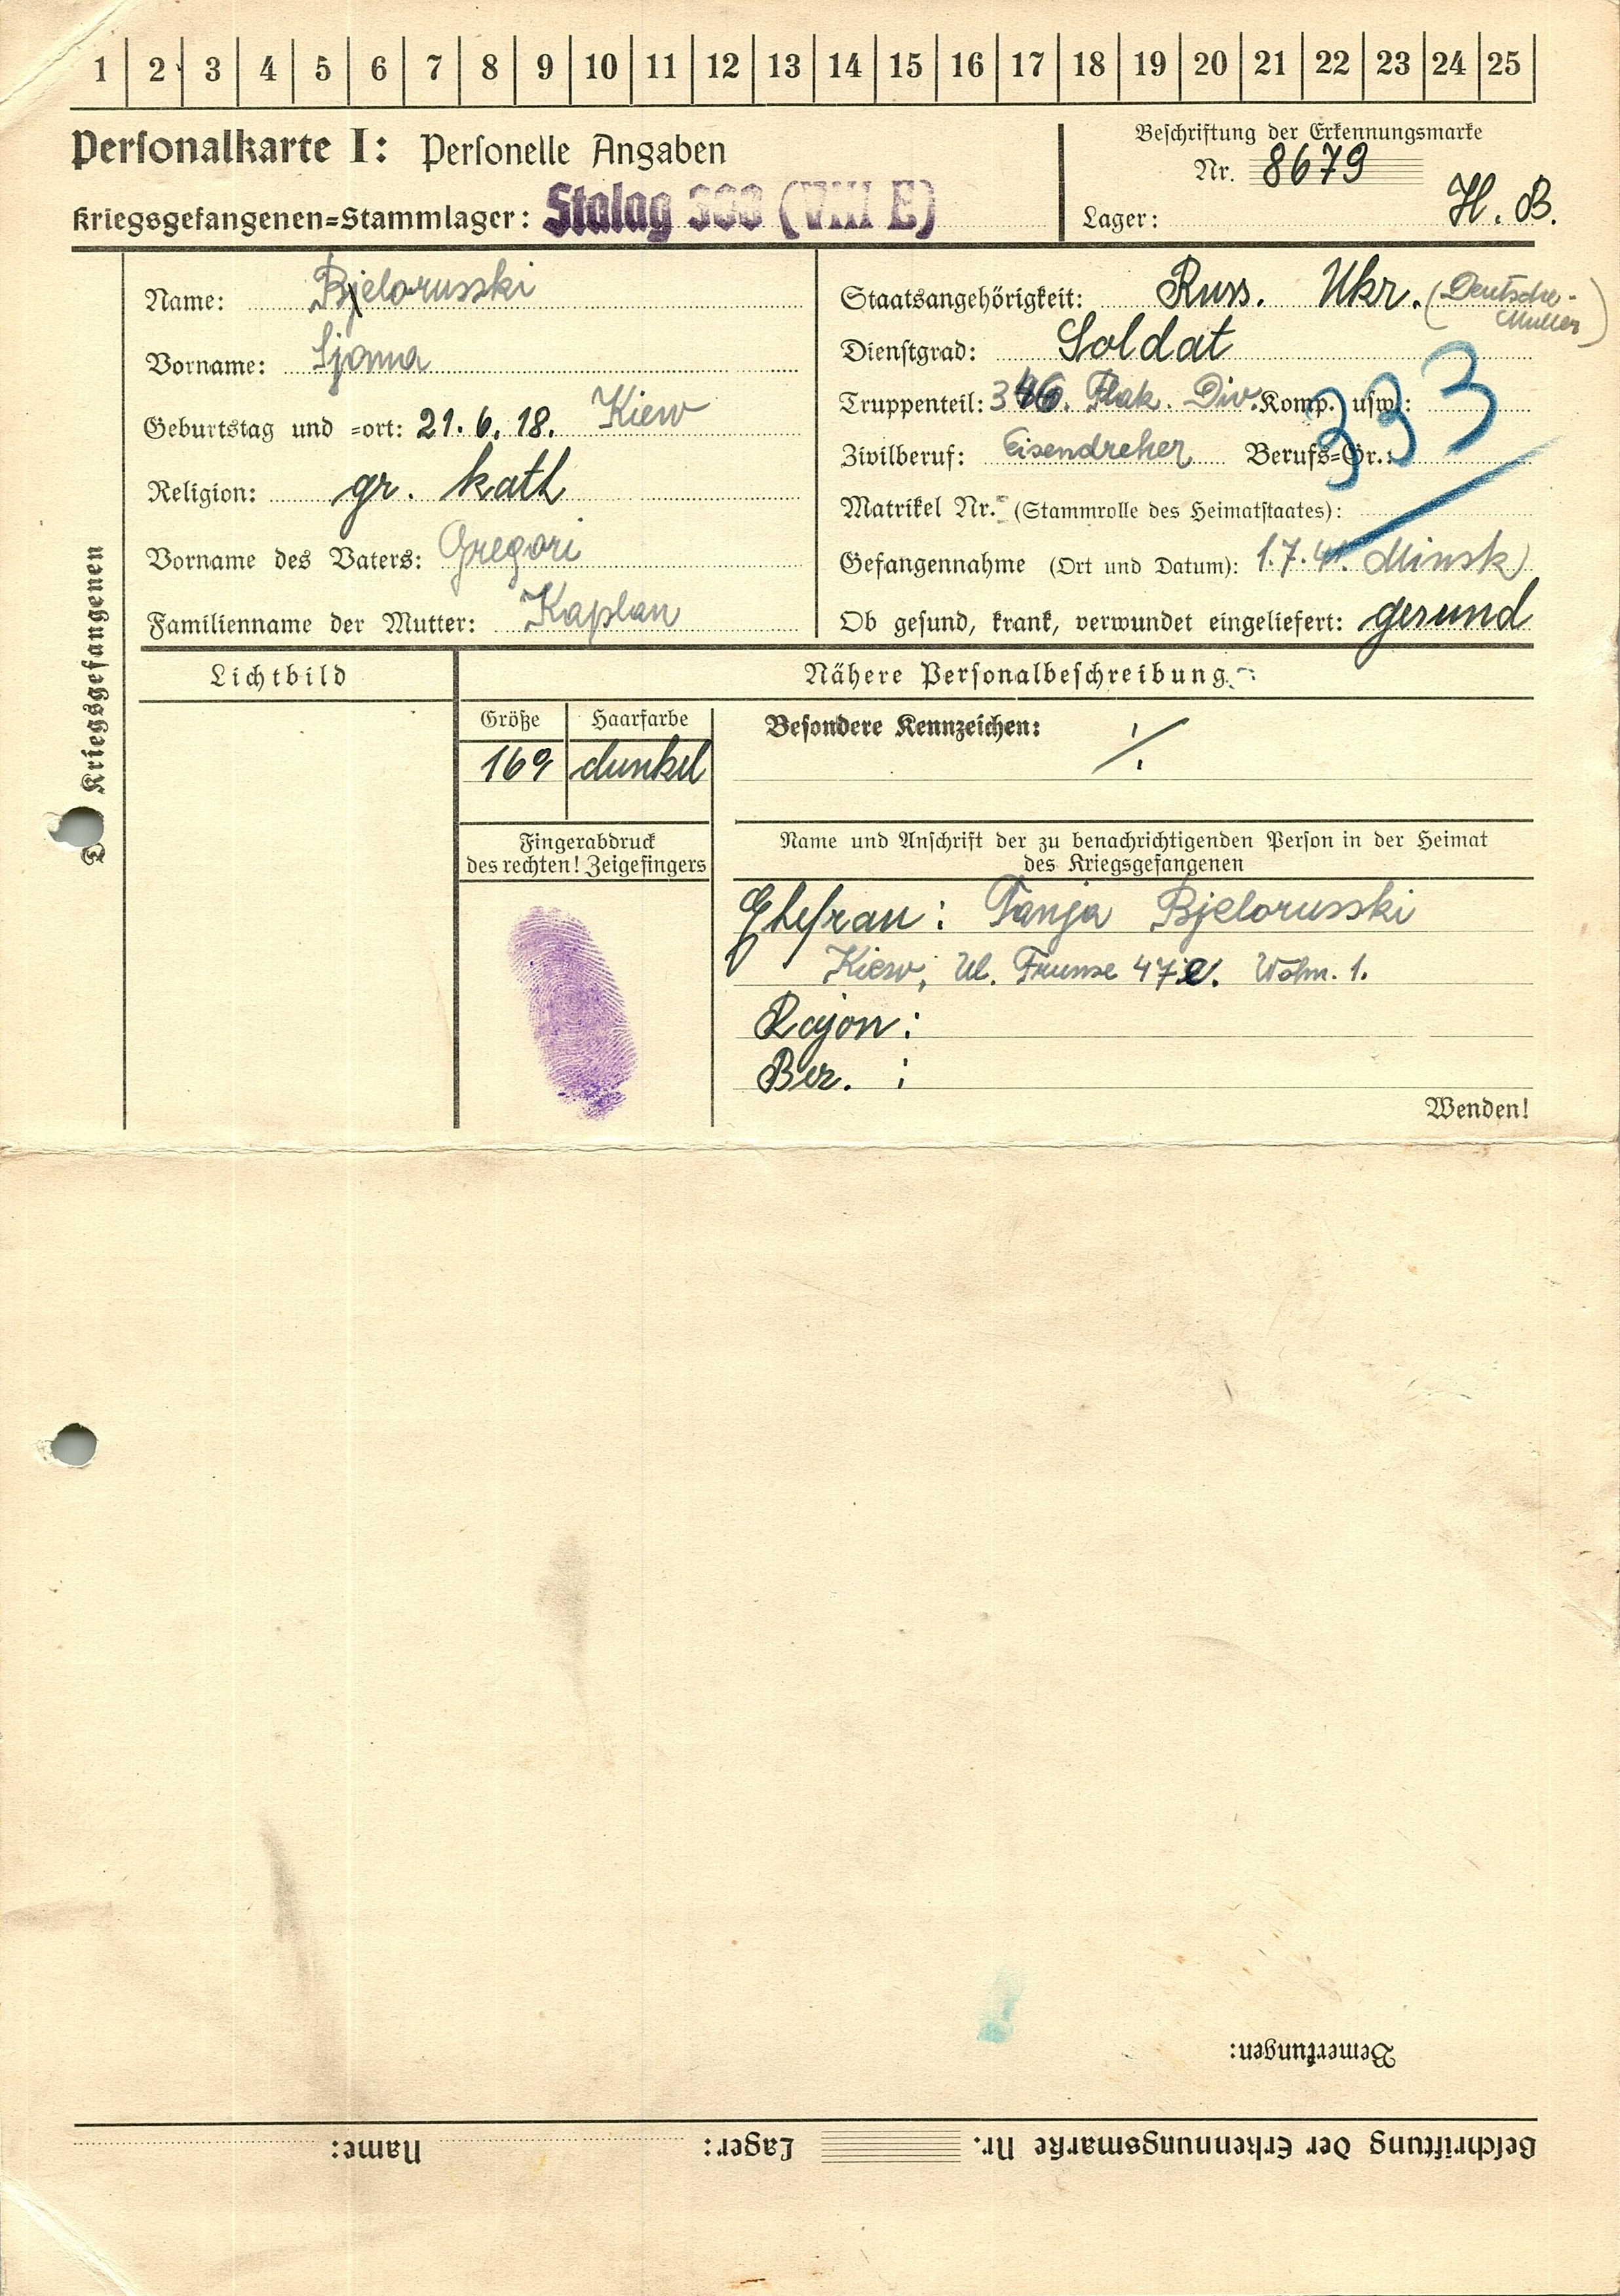 1 2 3 4 5 6 7 8 9 10 11 12 13 14 15 16 17 18 19 20 21 22 23 24 25
Personalkarte I: Personelle Angaben
Kriegsgefangenen=Stammlager: Stalag 308 (VIII E)
Beschriftung der Erkennungsmarke
Nr. 8679
Lager: H. B.
Des Kriegsgefangenen
Name: Bjelorusski
Vorname: Sjoma
Geburtstag und =ort: 21. 6. 18. Kiew
Religion: gr. kath
Vorname des Vaters: Gregori
Familienname der Mutter: Kaplan
Staatsangehörigkeit: Russ. Ukr. (Deutsche-
Mutter)
Dienstgrad: Soldat
Truppenteil: 346. Flak. Div. Komp. usw.:
333
Zivilberuf: Eisendreher Berufs=Gr.:
Matrikel Nr. (Stammrolle des Heimatstaates):
Gefangennahme (Ort und Datum): 1.7.41. Minsk
Ob gesund, krank, verwundet eingeliefert: gesund
Lichtbild
Nähere Personalbeschreibung
Größe Haarfarbe
169 dunkel
Besondere Kennzeichen: ./.
Fingerabdruck
des rechten! Zeigefingers
Name und Anschrift der zu benachrichtigenden Person in der Heimat
des Kriegsgefangenen
Ehefrau: Tanja Bjelorusski
Kiew, Ul. Frunse Wohn. 1.
Rajon:
Bez. :
Wenden!
Bemerkungen:
Beschriftung der Erkennungsmarke Nr. Lager: Name: